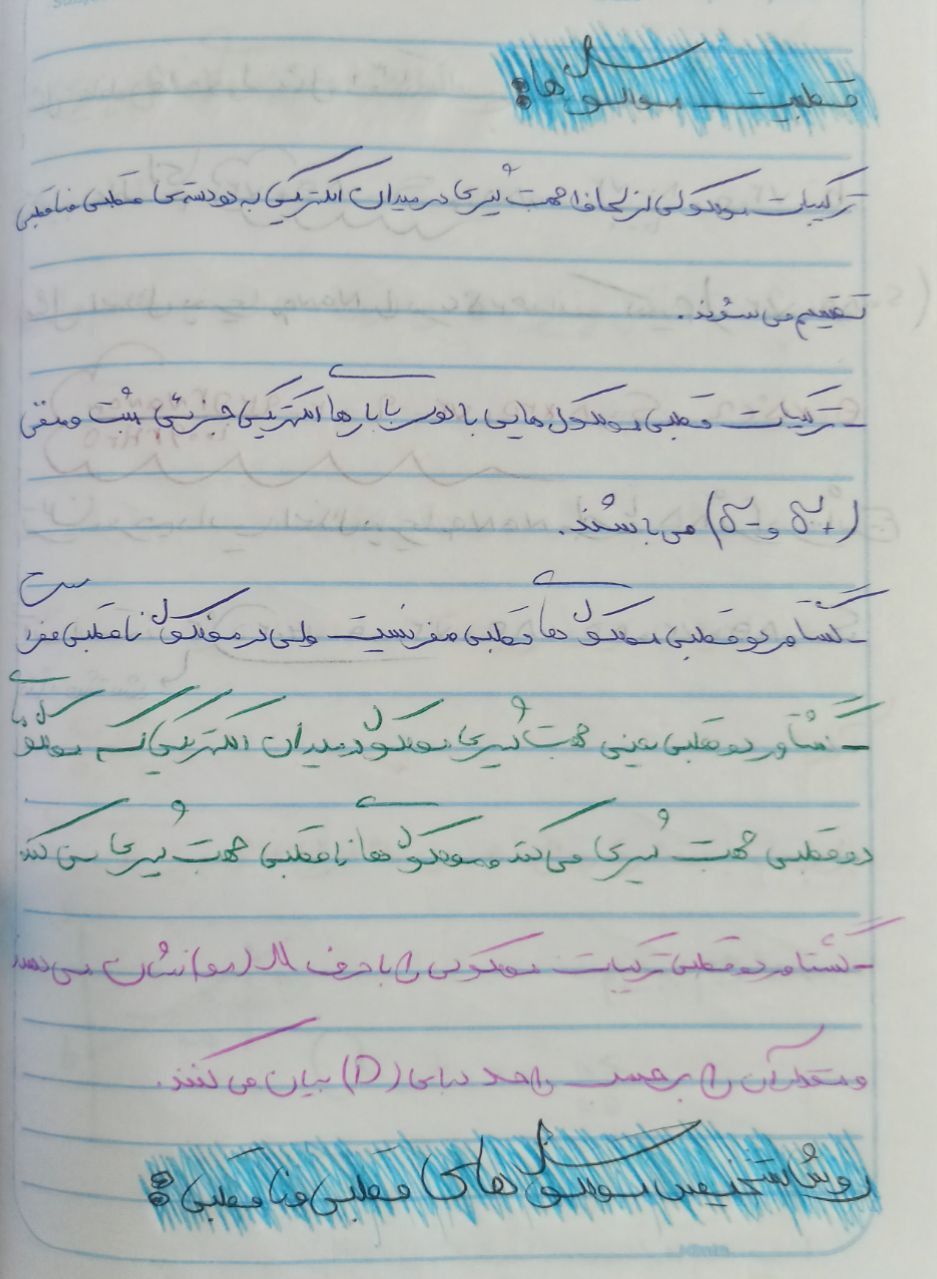 قطبیت مولکول ها:
ترکیبات مولکولی از لحاظ جهت گیری در میدان الکتریکی به دو دسته ی قطبی و ناقطبی
تقسیم می شوند.
- ترکیبات قطبی مولکول هایی با نوب با بارهای الکتریکی جزئی مثبت و منفی
(δ+ و δ-) می باشند.
- گشتاور دو قطبی مولکول های قطبی صفر نیست ولی در مولکول ناقطبی صفر است
- گشتاور دو قطبی یعنی جهت گیری مولکول در میدان الکتریکی که مولکول های
دو قطبی جهت گیری می کنند و مولکول های ناقطبی جهت گیری نمی کنند
- گشتاور دو قطبی ترکیبات مولکولی را با حرف μ (مو) نشان می دهند
و مقدار آن را برحسب واحد دبای (D) بیان می کنند.
روش تشخیص مولکول های قطبی و ناقطبی: